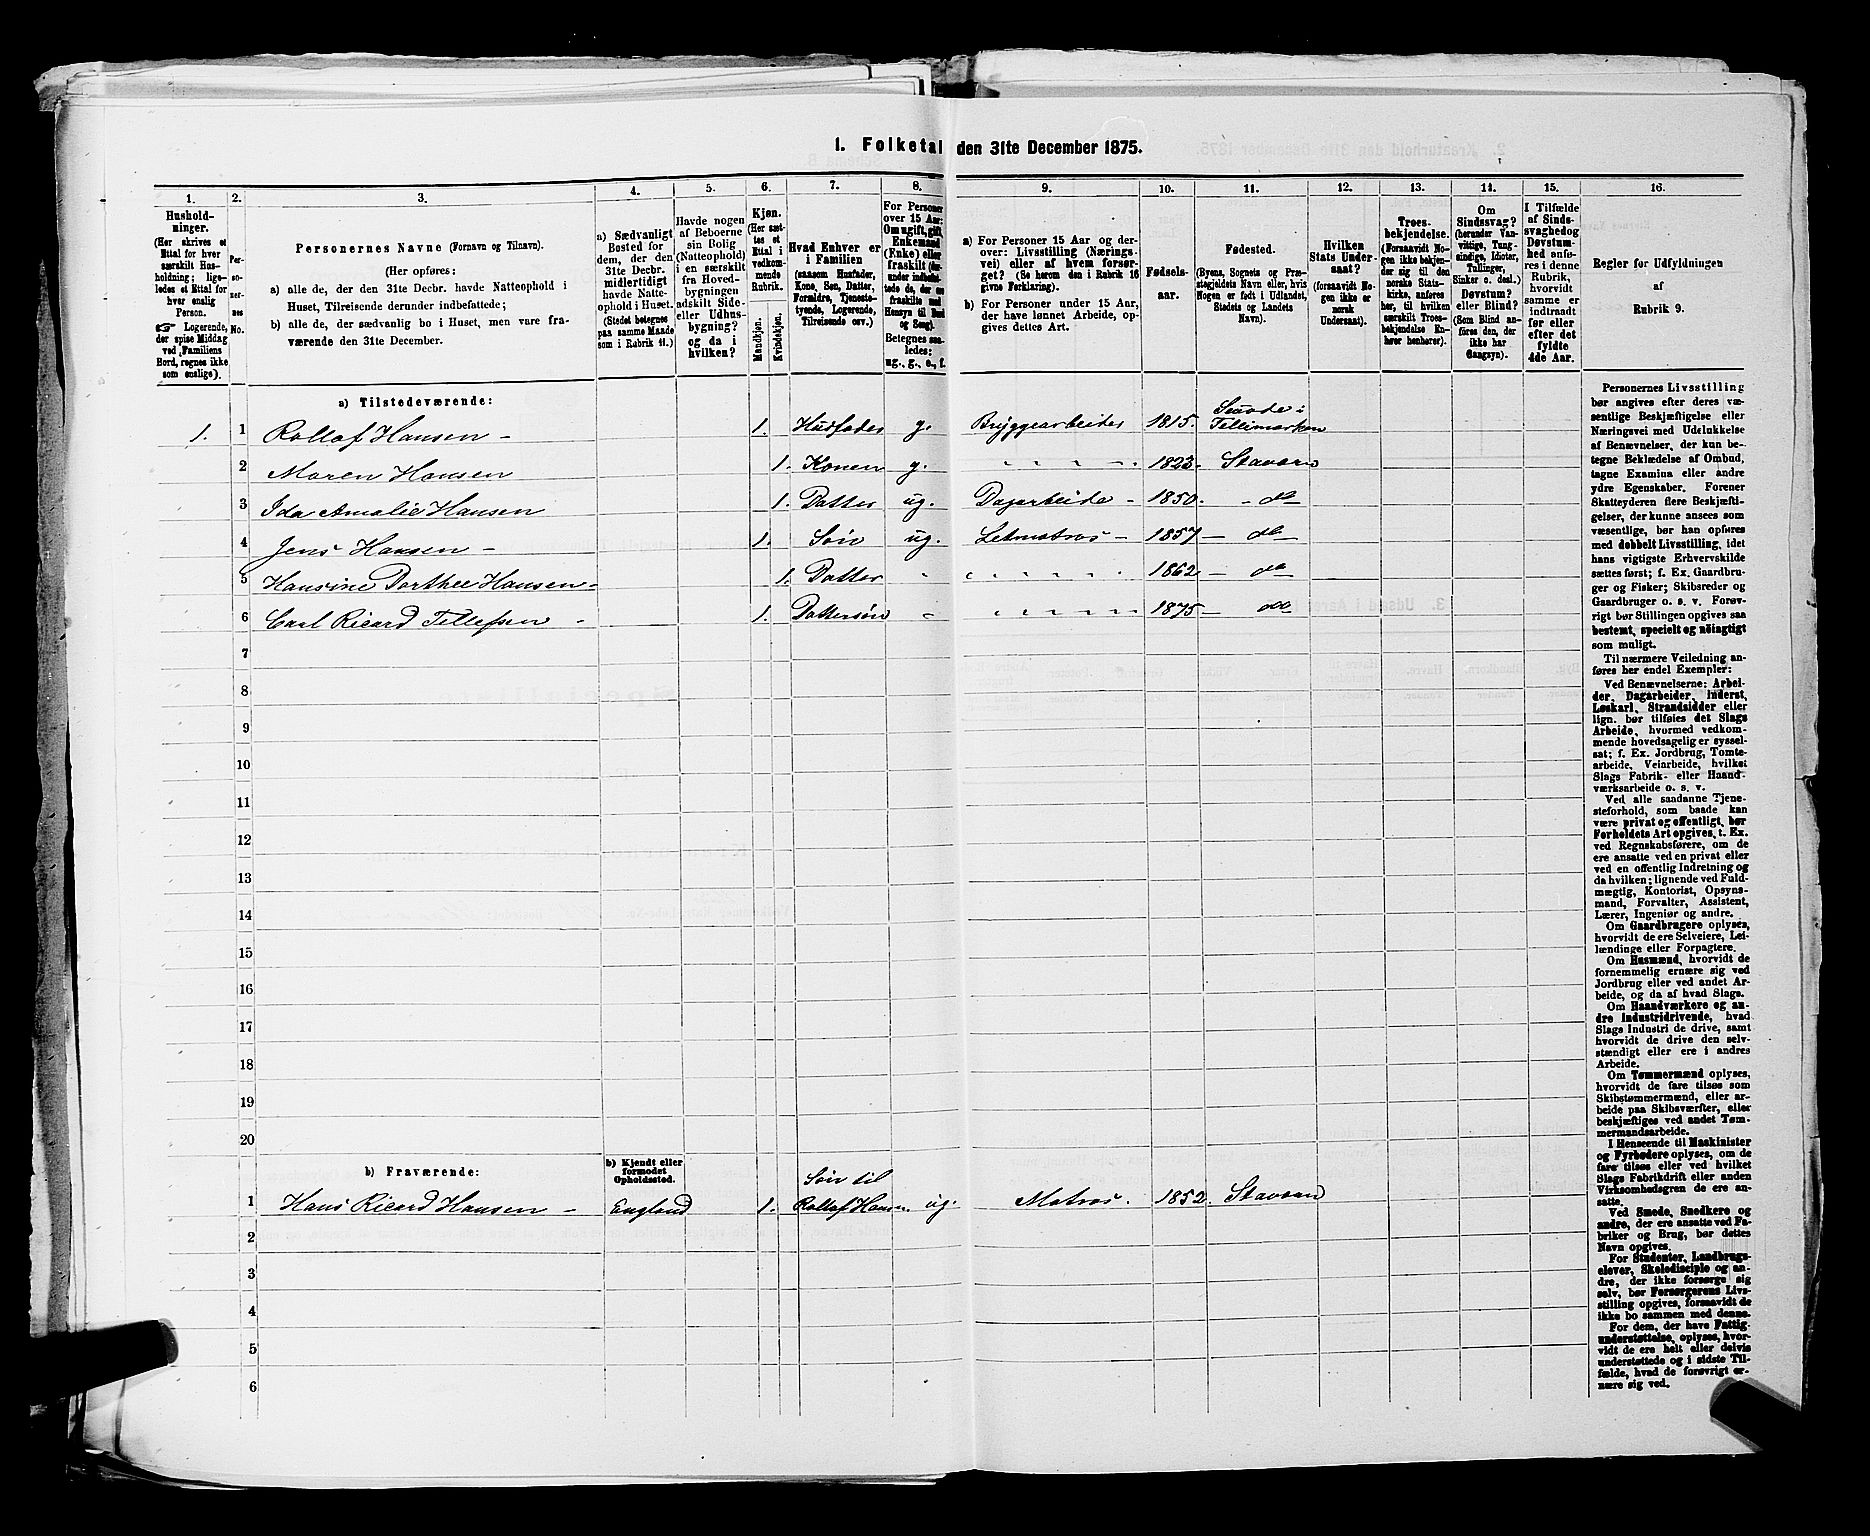 1. Folketal den 31te December 1875.
1. 2. 3. 4. 5. 6. 7. 8. 9. 10. 11. 12. 13. 14. 15. 16.
Hushold-
ninger.
(Her skrives et
Ettal for hver
særskilt Hus-
holdning; lige-
ledes et Ettal for
hver enslig
Person.
☞ Logerende,
der spise Middag
ved Familiens
Bord, regnes ikke
som enslige).
Per-
so-
ner-
nes
No.
Personernes Navne (Fornavn og Tilnavn).
(Her opføres:
a) alle de, der den 31te Decbr. havde Natteophold i
Huset, Tilreisende derunder indbefattede;
b) alle de, der sædvanlig bo i Huset, men vare fra-
værende den 31te December.
a) Sædvanligt
Bosted for
dem, der den
31te Decbr.
midlertidigt
havde Natte-
ophold i Huset.
(Stedet betegnes
paa samme Maade
som i Rubrik 11.)
Havde nogen
af Beboerne
sin Bolig
(Natteophold)
i en særskilt
fra Hoved-
bygningen
adskilt Side-
eller Udhus-
bygning?
og da i
hvilken?
Kjøn.
(Her sæt-
tes et
Ettal i
vedkom-
mende
Rubrik.
Mandkjøn.
Kvindekjøn.
Hvad Enhver er
i Familien
(saasom Husfader,
Kone, Søn, Datter,
Forældre, Tjeneste-
tyende, Logerende,
Tilreisende osv.)
For Personer
over 15 Aar:
Om ugift, gift,
Enkemand
(Enke) eller
fraskilt (der-
under indbefat-
tede de, der ere
fraskilte med
Hensyn til Bord
og Seng).
Betegnes saa-
ledes:
ug., g., e., f.
a) For Personer 15 Aar og der-
over: Livsstilling (Nærings-
vei) eller af hvem forsør-
get? (Se herom den i Rubrik 16
givne Forklaring).
b) For Personer under 15 Aar,
der have lønnet Arbeide, op-
gives dettes Art.
Fødsels-
aar.
Fødested.
(Byens, Sognets og Præ-
stegjeldets Navn eller, hvis
Nogen er født i Udlandet,
Stedets og Landets
Navn).
Hvilken
Stats Under-
saat?
(forsaavidt No-
gen ikke er
norsk
Undersaat).
Troes-
bekjendelse.
(Forsaavidt No-
gen ikke bekjen-
der sig til den
norske Stats-
kirke, anføres
her, til hvilken
særskilt Troes-
bekjendelse En-
hver henhører).
Om
Sindssvag?
(herunder Van-
vittige, Tung-
sindige, Idioter,
Tullinger,
Sinker o. desl.)
Døvstum?
eller Blind?
(Som Blind an-
føres den, der
ikke har
Gangsyn).
I Tilfælde
af Sinds-
svaghed og
Døvstum-
hed anfø-
res i denne
Rubrik,
hvorvidt
samme er
indtraadt
før eller
efter det
fyldte
4de Aar.
Regler før Udfyldningen
af
Rubrik 9.
a) Tilstedeværende:
1. 1 Rollof Hansen - 1. Husfader g. Bryggearbeider 1815. Tellemarken
2 Maren Hansen 1. Konen g. 1823. Stavern
3 Ida Amalie Hansen 1. Datter ug. Dagarbeide - 1850. - do
4 Jens Hansen - 1. Søn ug. Letmatros - 1857 - do
5 Hansine Dorthee Hansen - 1. Datter 1862 - do
6 Carl Ricard Tellefsen - 1. Dattersøn 1875 - do
7
8
9
10
11
12
13
14
15
16
17
18
19
20
b) Fraværende:
b) Kjendt eller
formodet
Opholdssted.
Søn til
1 Hans Ricard Hansen - England 1. Rollof Hansen ug. Matros. 1852. Stavern
2
3
4
5
6
Personernes Livsstilling
bør angives efter deres væ-
sentlige Beskjæftigelse eller
Næringsvei med Udelukkelse
af Benævnelser, der kun be-
tegne Beklædelse af Ombud,
tagne Examina eller andre
ydre Egenskaber. Forener
Skatteyderen flere Beskjæfti-
gelser, der kunne ansees som
væsentlige, bør han opføres
med dobbelt Livsstilling, idet
hans vigtigste Erhvervskilde
sættes først; f. Ex. Gaardbru-
ger og Fisker; Skibsreder og
Gaardbruger o. s. v. Forøv-
rigt bør Stillingen opgives saa
bestemt, specielt og nøiagtigt
som muligt.
Til nærmere Veiledning an-
føres her endel Exempler:
Ved Benævnelserne: Arbei-
der, Dagarbeider, Inderst,
Løskarl, Strandsidder eller
lign. bør tilføies det Slags
Arbeide, hvormed vedkom-
mende hovedsagelig er syssel-
sat; f. Ex. Jordbrug, Tomte-
arbeide, Veiarbeide, hvilket
Slags Fabrik- eller Haand-
værksarbeide o. s. v.
Ved alle saadanne Tjene-
steforhold, som baade kan
være privat og offentligt, bør
Forholdets Art opgives, t. Ex.
ved Regnskabsførere, om de
ere ansatte ved en privat eller
ved en offentlig Indretning og
da hvilken; lignende ved Fuld-
mægtig, Kontorist, Opsyns-
mand, Forvalter, Assistent,
Lærer, Ingeniør og andre.
Om Gaardbrugere oplyses,
hvorvidt de ere Selveiere, Lei-
lændinge eller Forpagtere.
Om Husmænd, hvorvidt de
fornemmelig ernære sig ved
Jordbrug eller ved andet Ar-
beide, og da af hvad Slags.
Om Haandværkere og an-
dre Industridrivende, hvad
Slags Industri de drive, samt
hvorvidt de drive den selv-
stændigt eller ere i andres
Arbeide.
Om Tømmermænd oplyses,
hvorvidt de fare tilsøs som
Skibstømmermænd, eller ar-
beide paa Skibsværfter, eller
beskjæftiges ved andet Tøm-
mermandsarbeide.
I Henseende til Maskinister
og Fyrbødere oplyses, om de
fare tilsøs eller ved hvilket
Slags Fabrikdrift eller anden
Virksomhedsgren de ere an-
satte.
Ved Smede, Snedkere og
andre, der ere ansatte ved Fa-
briker og Brug, bør dettes
Navn opgives.
For Studenter, Landbrugs-
elever, Skoledisciple og an-
dre, der ikke forsørge sig
selv, bør Forsørgerens Livs-
stilling opgives, forsaavidt de
ikke bo sammen med denne.
For dem, der have Fattig-
understøttelse, oplyses, hvor-
vidt de ere helt eller delvis
understøttede og i sidste Til-
fælde, hvad de forøvrigt er-
nære sig ved.